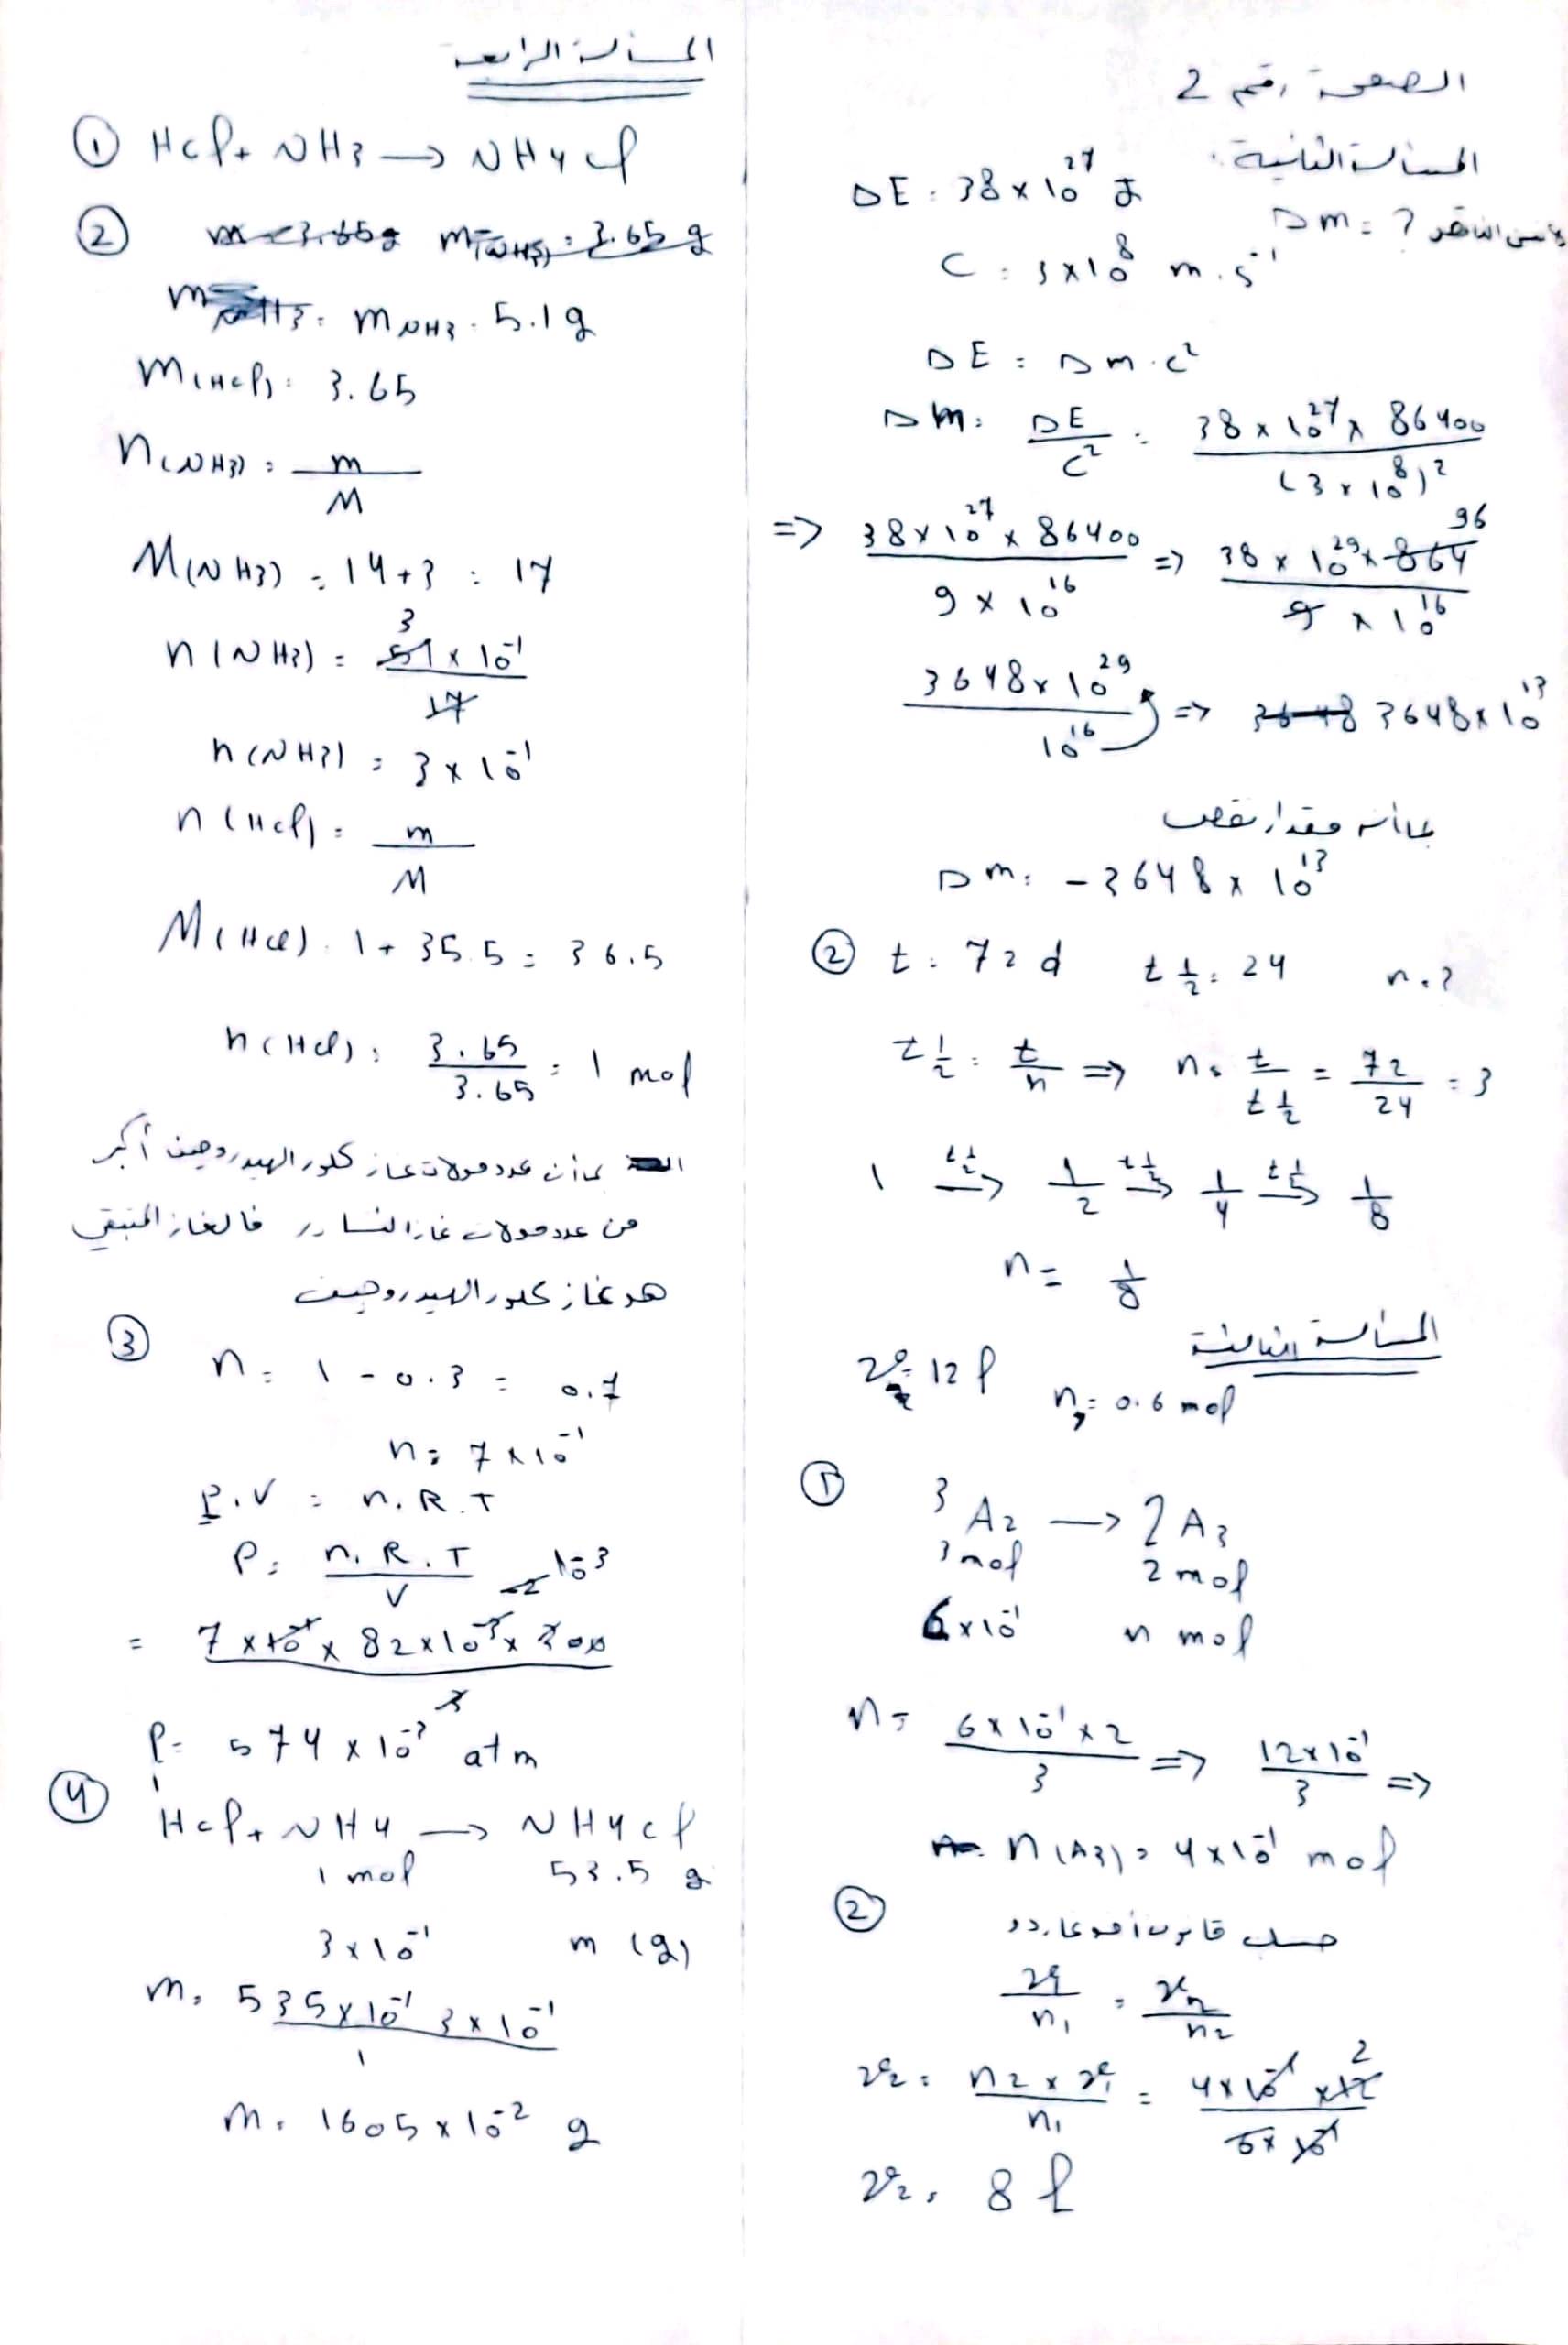 الصفحة رقم 2
المسألة الثانية:
ΔE = 38 × 10²⁷ J
Δm = ?
C = 3×10⁸ m.s⁻¹
ΔE = Δm . c²
Δm = ΔE / c² = 38 × 10²⁷ × 86400 / (3 × 10⁸)²
=> 38 × 10²⁷ × 86400 / 9 × 10¹⁶ => 38 × 10²⁹ × 864 96 / 9 × 10¹⁶
3648 × 10²⁹ / 10¹⁶ => 3648 3648 × 10¹³
بما أنه مقدار نقص
Δm = - 3648 × 10¹³
② t = 72 d t 1/2 = 24 n = ?
t 1/2 = t / n => n = t / t 1/2 = 72 / 24 = 3
1 t 1/2 → 1/2 t 1/2 → 1/4 t 1/2 → 1/8
n = 1/8
المسألة الثالثة
v₁ = 12 l n₁ = 0.6 mol
① 3 A₂ → 2 A₃
3 mol 2 mol
6 × 10⁻¹ n mol
n = 6 × 10⁻¹ × 2 / 3 => 12 × 10⁻¹ / 3 =>
n(A3) = 4 × 10⁻¹ mol
② حسب قانون أفوغادرو
v₁ / n₁ = v₂ / n₂
v₂ = n₂ × v₁ / n₁ = 4 × 10⁻¹ × 12 2 / 6 × 10⁻¹
v₂ = 8 l
المسألة الرابعة
① Hcl + NH3 → NH4cl
② m = 3.65g m(NH3) = 3.65 g
m NH3 = m NH3 = 5.1 g
m(Hcl) = 3.65
n(NH3) = m / M
M(NH3) = 14 + 3 = 17
n(NH3) = 3 51 × 10⁻¹ / 17
n(NH3) = 3 × 10⁻¹
n(Hcl) = m / M
M(Hcl) = 1 + 35.5 = 36.5
n(Hcl) = 3.65 / 3.65 = 1 mol
بما أن عدد مولات غاز كلور الهيدروجين أكبر
من عدد مولات غاز النشادر فالغاز المتبقي
هو غاز كلور الهيدروجين
③ n = 1 - 0.3 = 0.7
n = 7 × 10⁻¹
P.V = n.R.T
P = n.R.T / V
= 7 × 10⁻¹ × 82 × 10⁻³ × 300 10⁻³ / 3
P = 574 × 10⁻³ atm
④ Hcl + NH4 → NH4cl
1 mol 53.5 g
3 × 10⁻¹ m (g)
m = 535 × 10⁻¹ 3 × 10⁻¹ / 1
m = 1605 × 10⁻² g